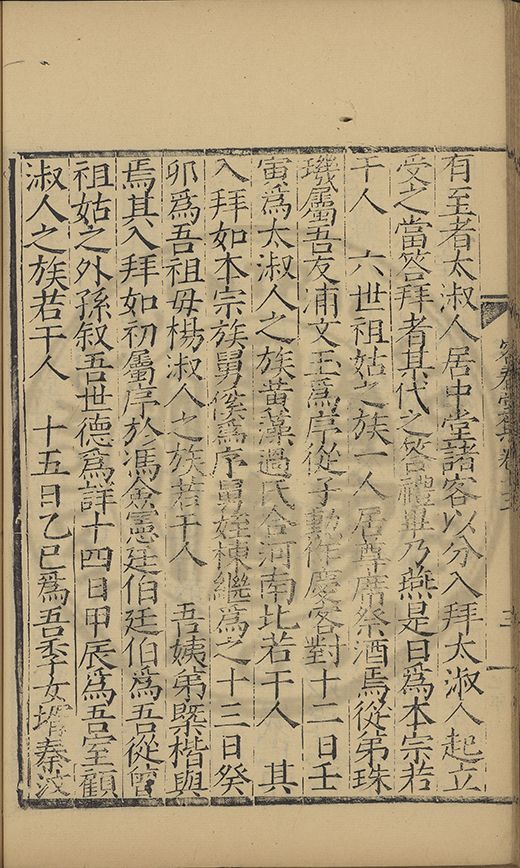 有至者太淑人居中堂諸客以分入拜太淑人起立
受之當荅拜者其代之荅禮畢乃燕是日爲本宗若
干人　六世祖姑之族一人居尊席祭酒焉從弟珠
璣屬吾友浦文玉爲序從子勳作慶客對十二日壬
寅爲太淑人之族黃藻過氏合河南比若干人　其
入拜如本宗族舅俟爲序舅姪棟繼爲之十三日癸
卯爲吾祖母楊淑人之族若干人　吾姨弟槩楷與
焉其入拜如初屬序於馮僉憲廷伯廷伯爲吾從曾
祖姑之外孫叙吾世德爲詳十四日甲辰爲吾室顧
淑人之族若干人　十五日乙巳爲吾季女壻秦汶
容春堂集卷